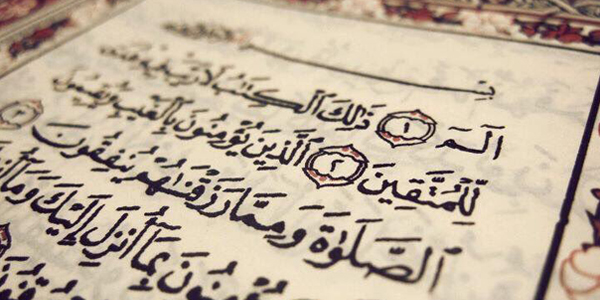 بِسۡ
الٓمٓ ١ ذَٰلِكَ ٱلۡكِتَٰبُ لَا رَيۡبَۛ فِيهِۛ هُدٗى
لِّلۡمُتَّقِينَ ٢ ٱلَّذِينَ يُؤۡمِنُونَ بِٱلۡغَيۡبِ وَيُقِيمُونَ
ٱلصَّلَوٰةَ وَمِمَّا رَزَقۡنَٰهُمۡ يُنفِقُونَ ٣
يُؤۡمِنُونَ بِمَآ أُنزِلَ إِلَيۡكَ وَمَآ أُنزِلَ